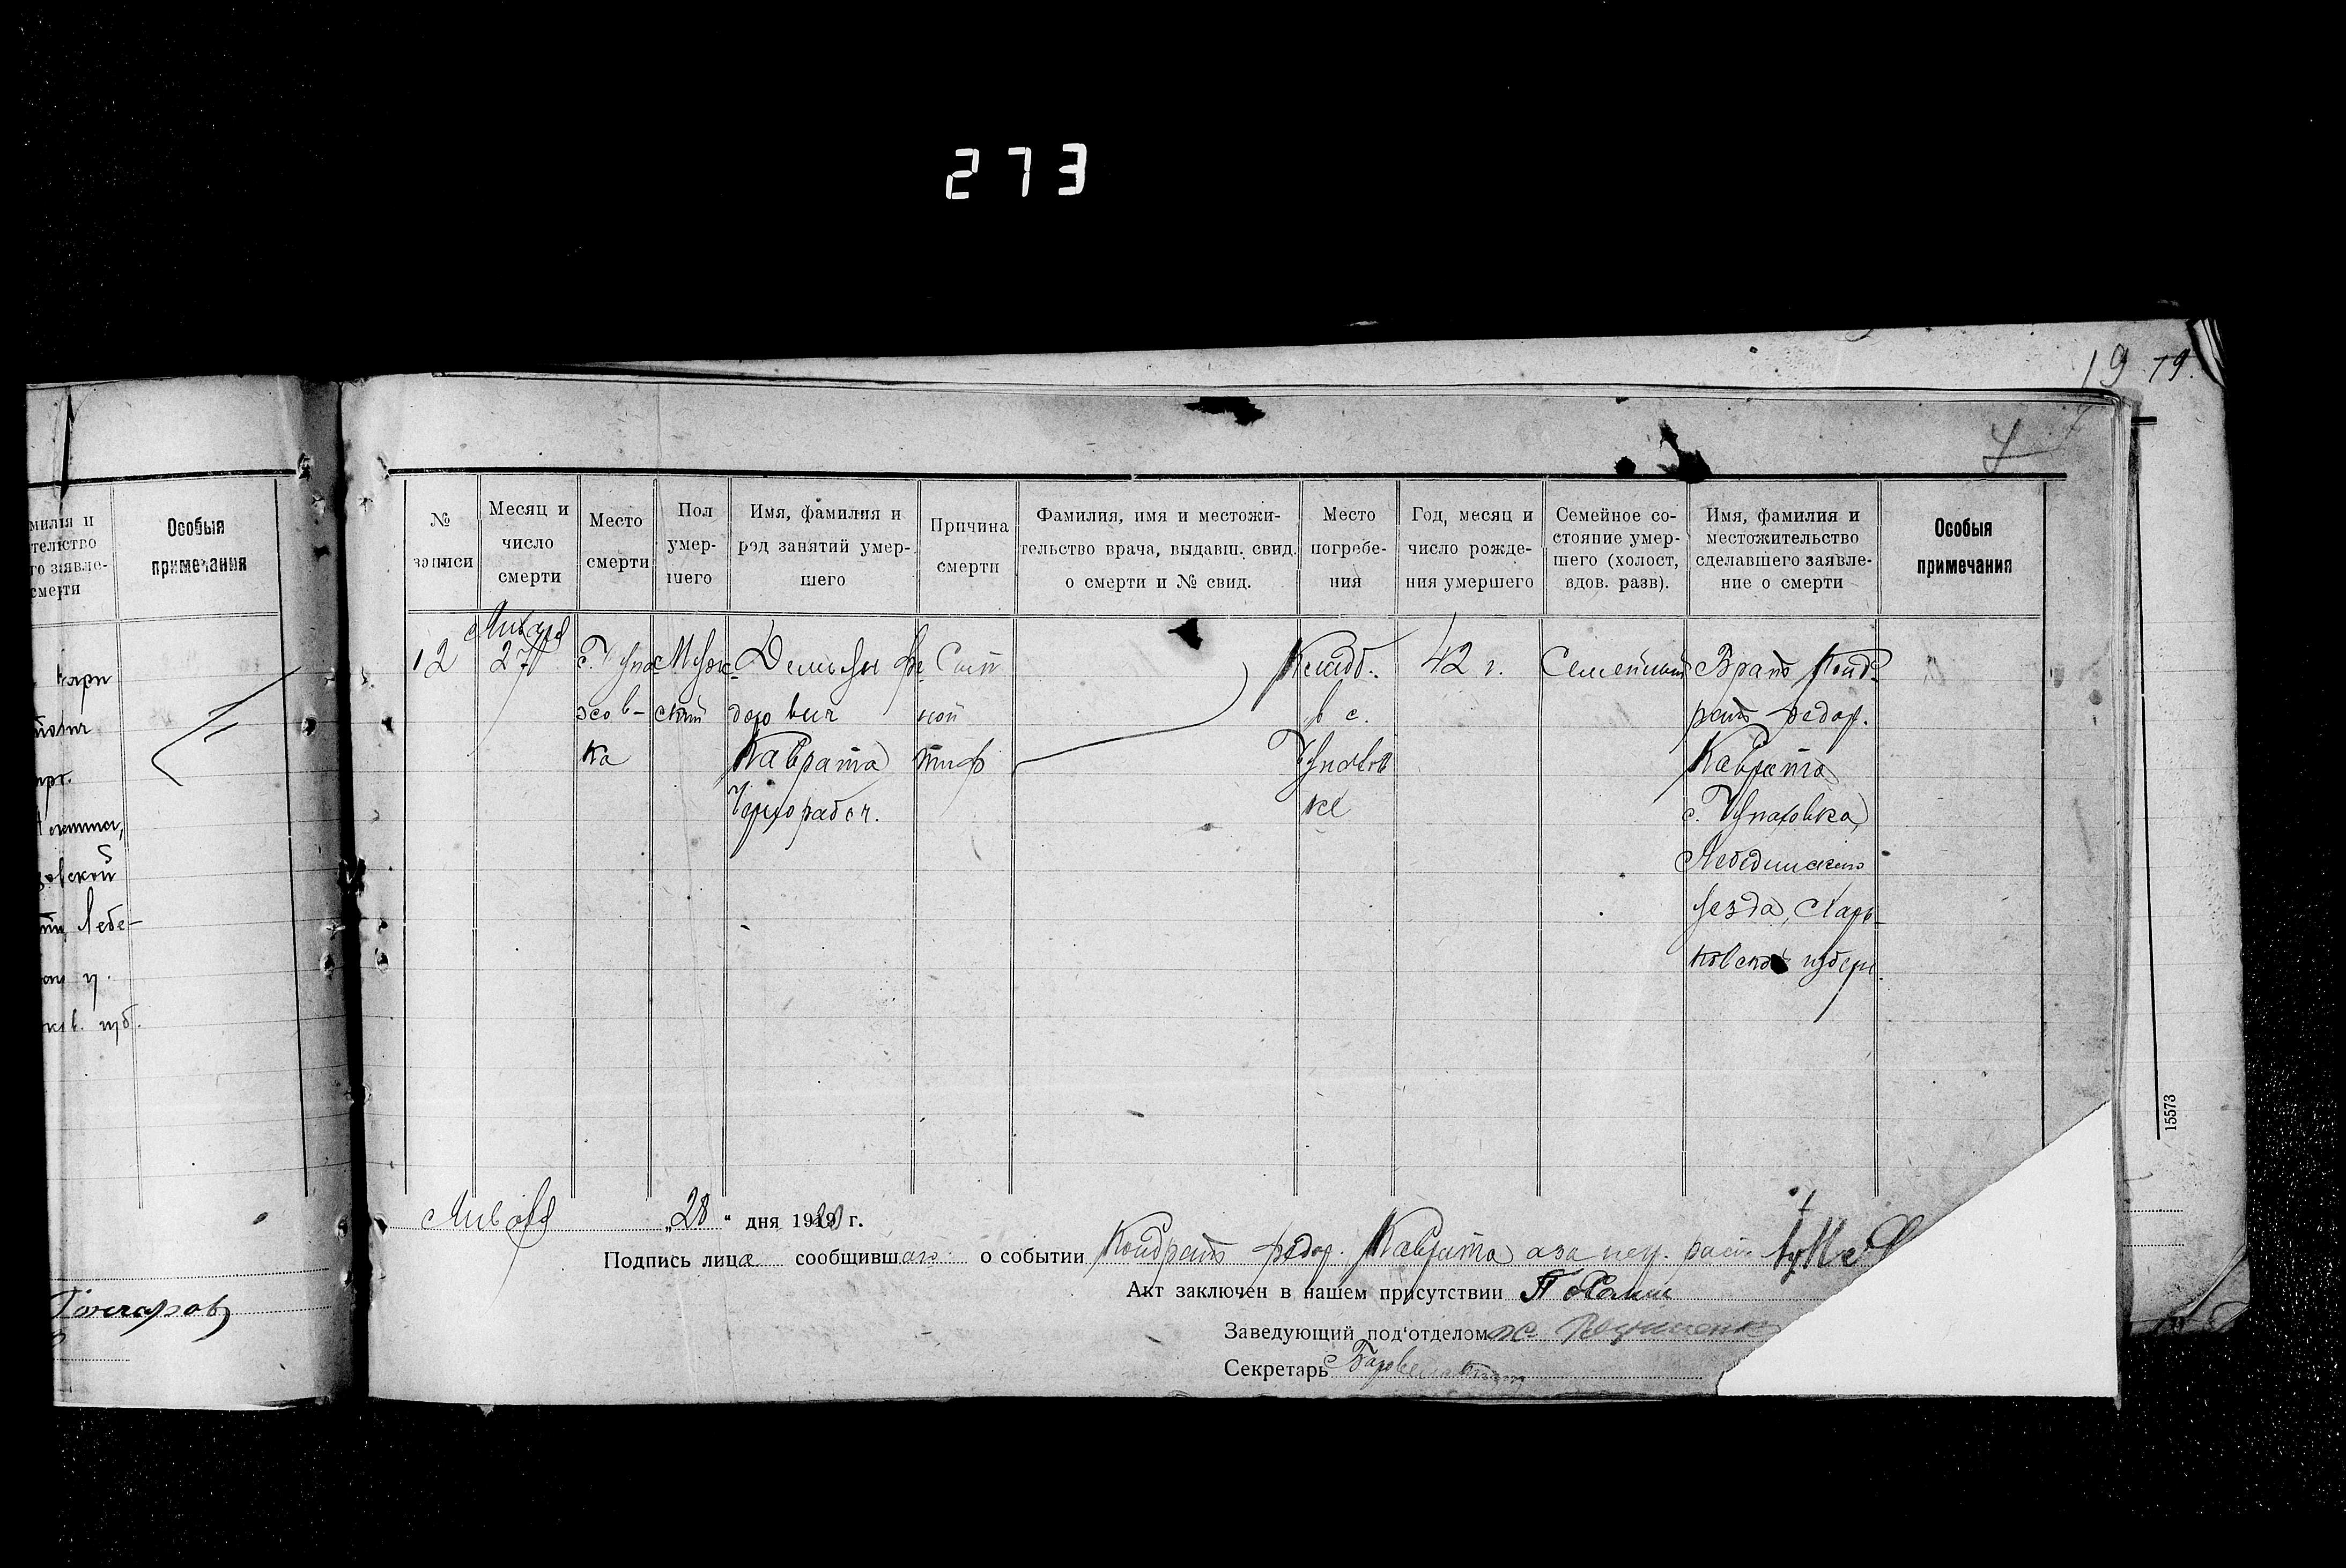 273
19 79.
7
милія и
тельство
го заявле-
смерти
Особыя
примечания
Лебе-
губ.
Гончаров
№
записи
Месяц и
число
смерти
Место
смерти
Пол
умер-
шего
Имя, фамилия и
род занятий умер-
шего
Причина
смерти
Фамилия, имя и местожи-
тельство врача, выдавш. свид.
о смерти и № свид.
Место
погребе-
ния
Год, месяц и
число рожде-
ния умершего
Семейное со-
стояние умер-
шего (холост,
вдов. разв).
Имя, фамилия и
местожительство
сделавшего заявле-
ние о смерти
Особыя
примечания
12
Января
27
с. Чупа-
хов-
ка
Муж-
ской
Демьян Фе-
дорович
Каврата
Чернорабоч.
Сып
ной
тиф
Кладб.
в с.
Чупахов
ке
42 г.
Семейный
Брат Конд-
рат Федор.
Каврата
с. Чупаховка,
Лебединского
уезда, Харь-
ковской губерн.
Января „28“ дня 1919 г.
Подпись лица сообщившаго о событии Кондрат Федор. Каврата а за неу. расп.
Акт заключен в нашем присутствии
Заведующий под‘отделом
Секретарь
15573